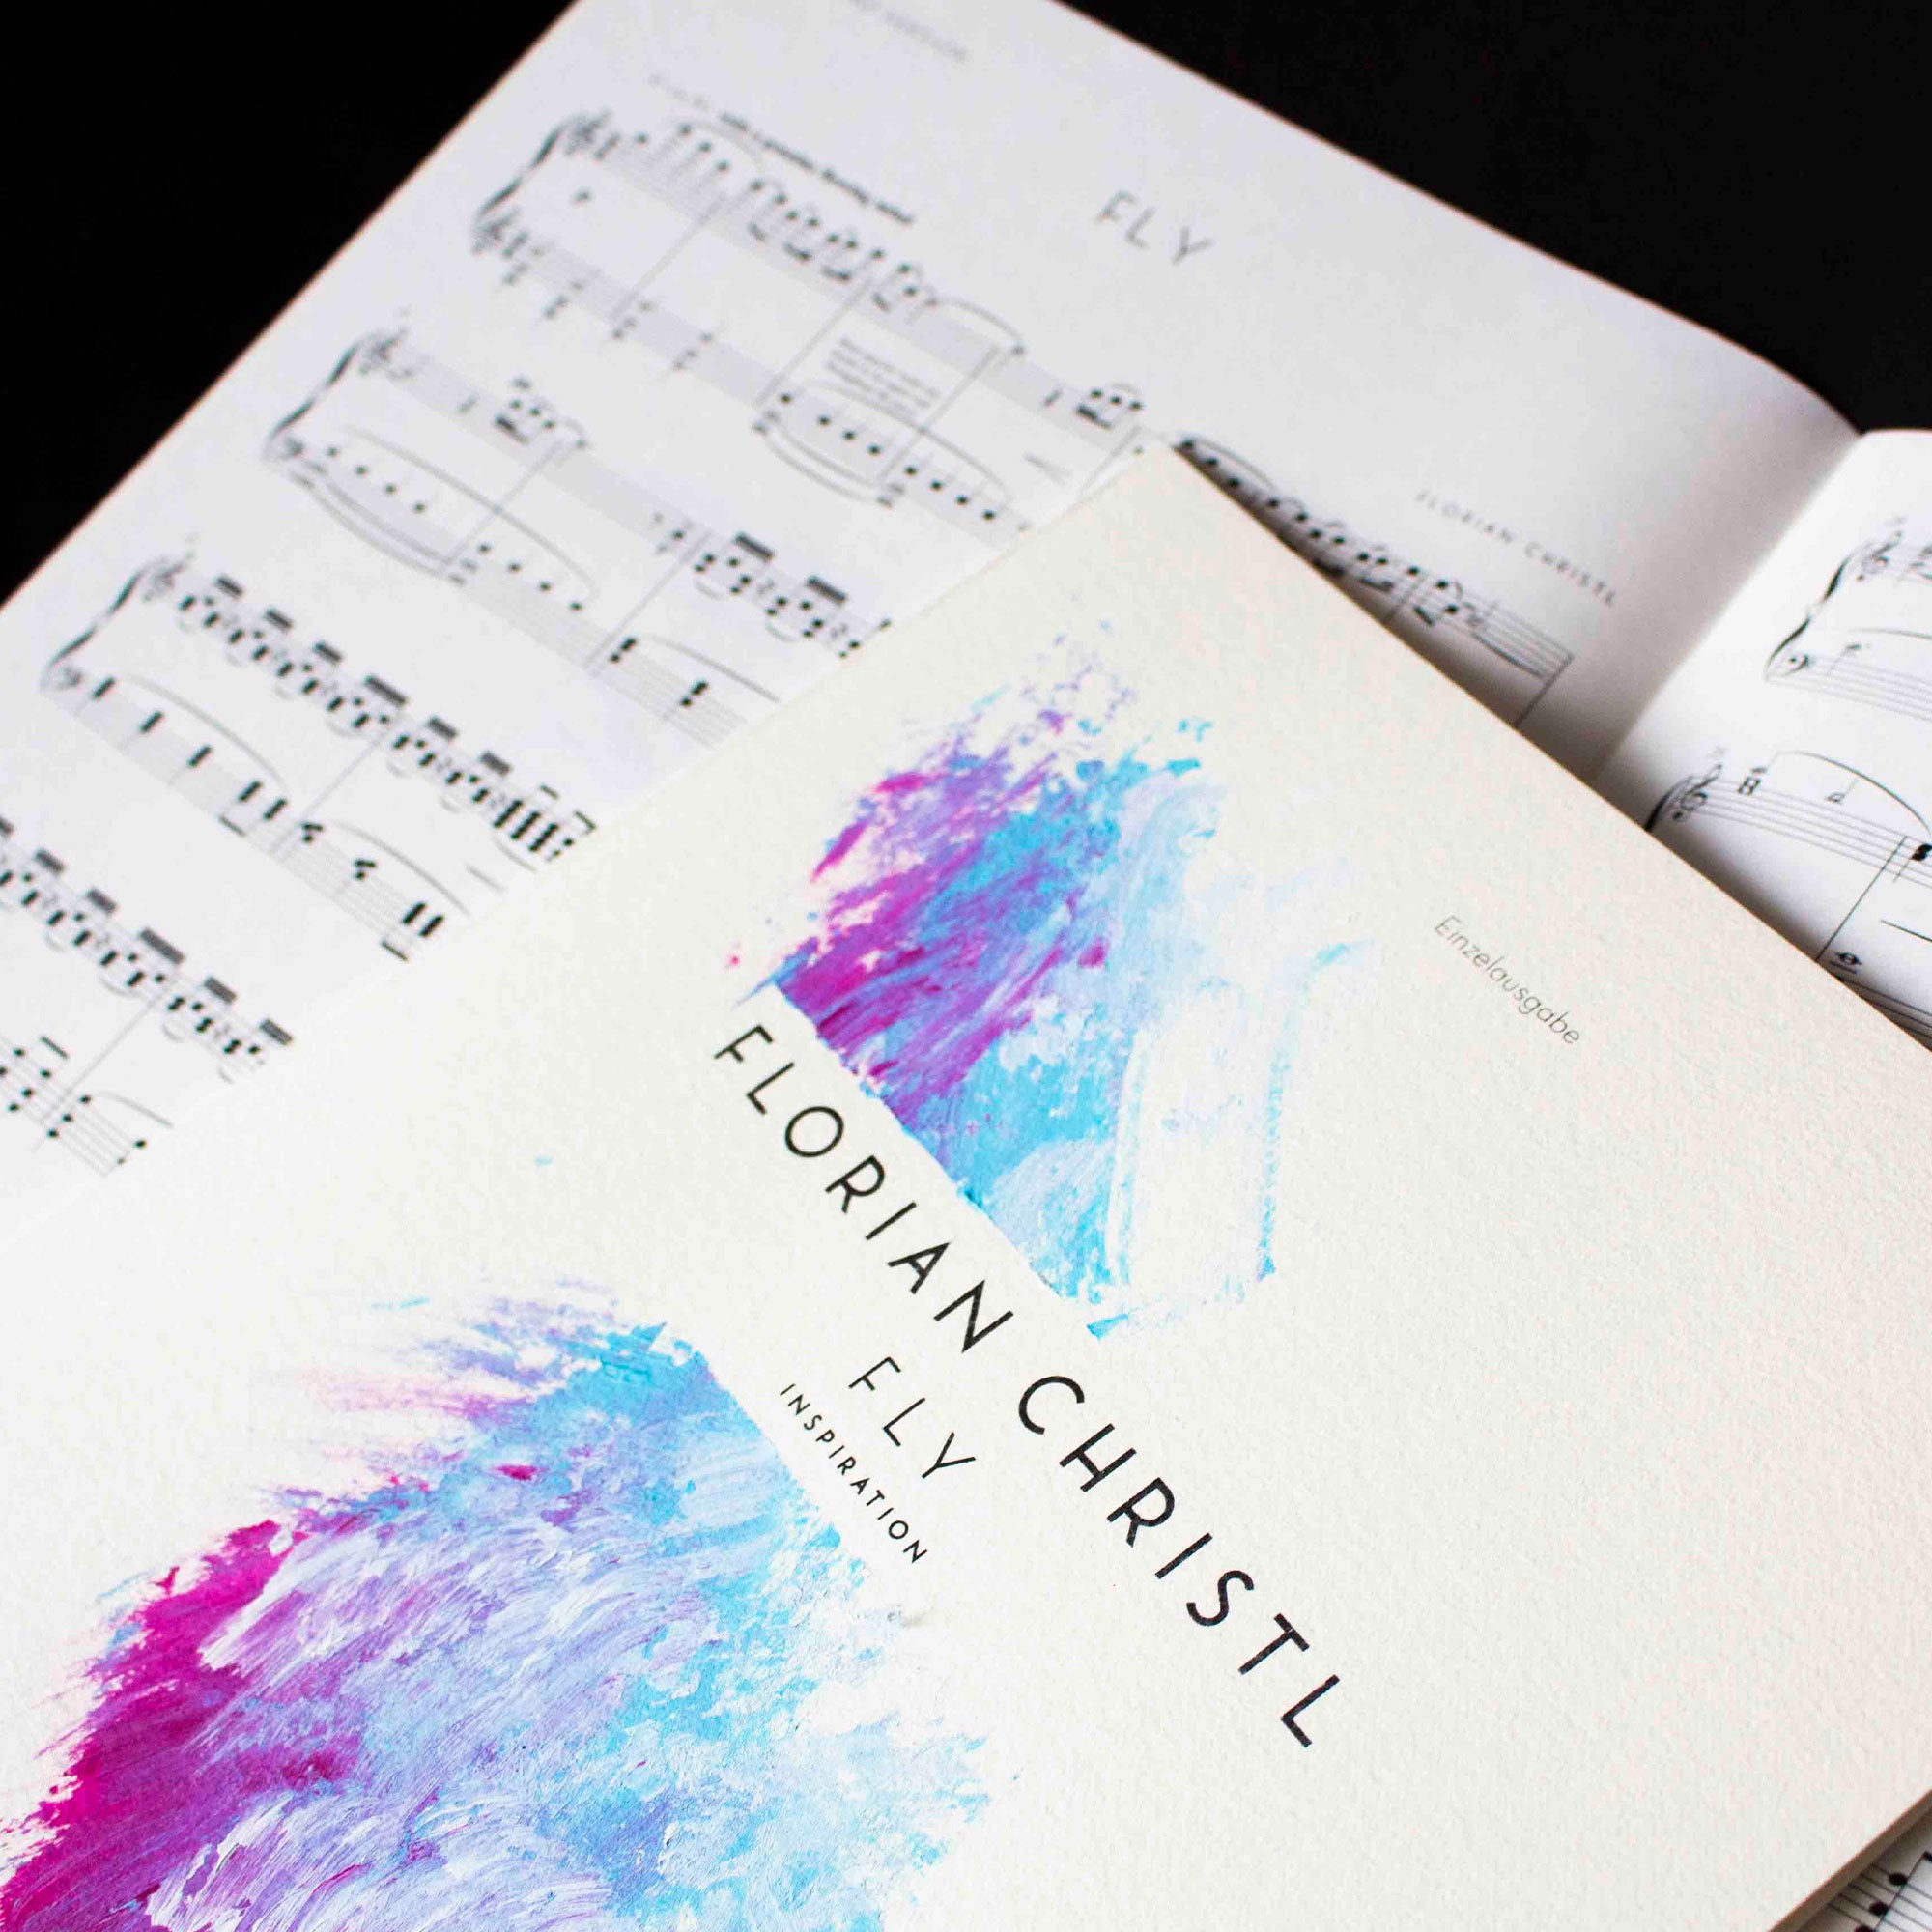 FLY
FLORIAN CHRISTL
Einzelausgabe
FLORIAN CHRISTL
FLY
INSPIRATION